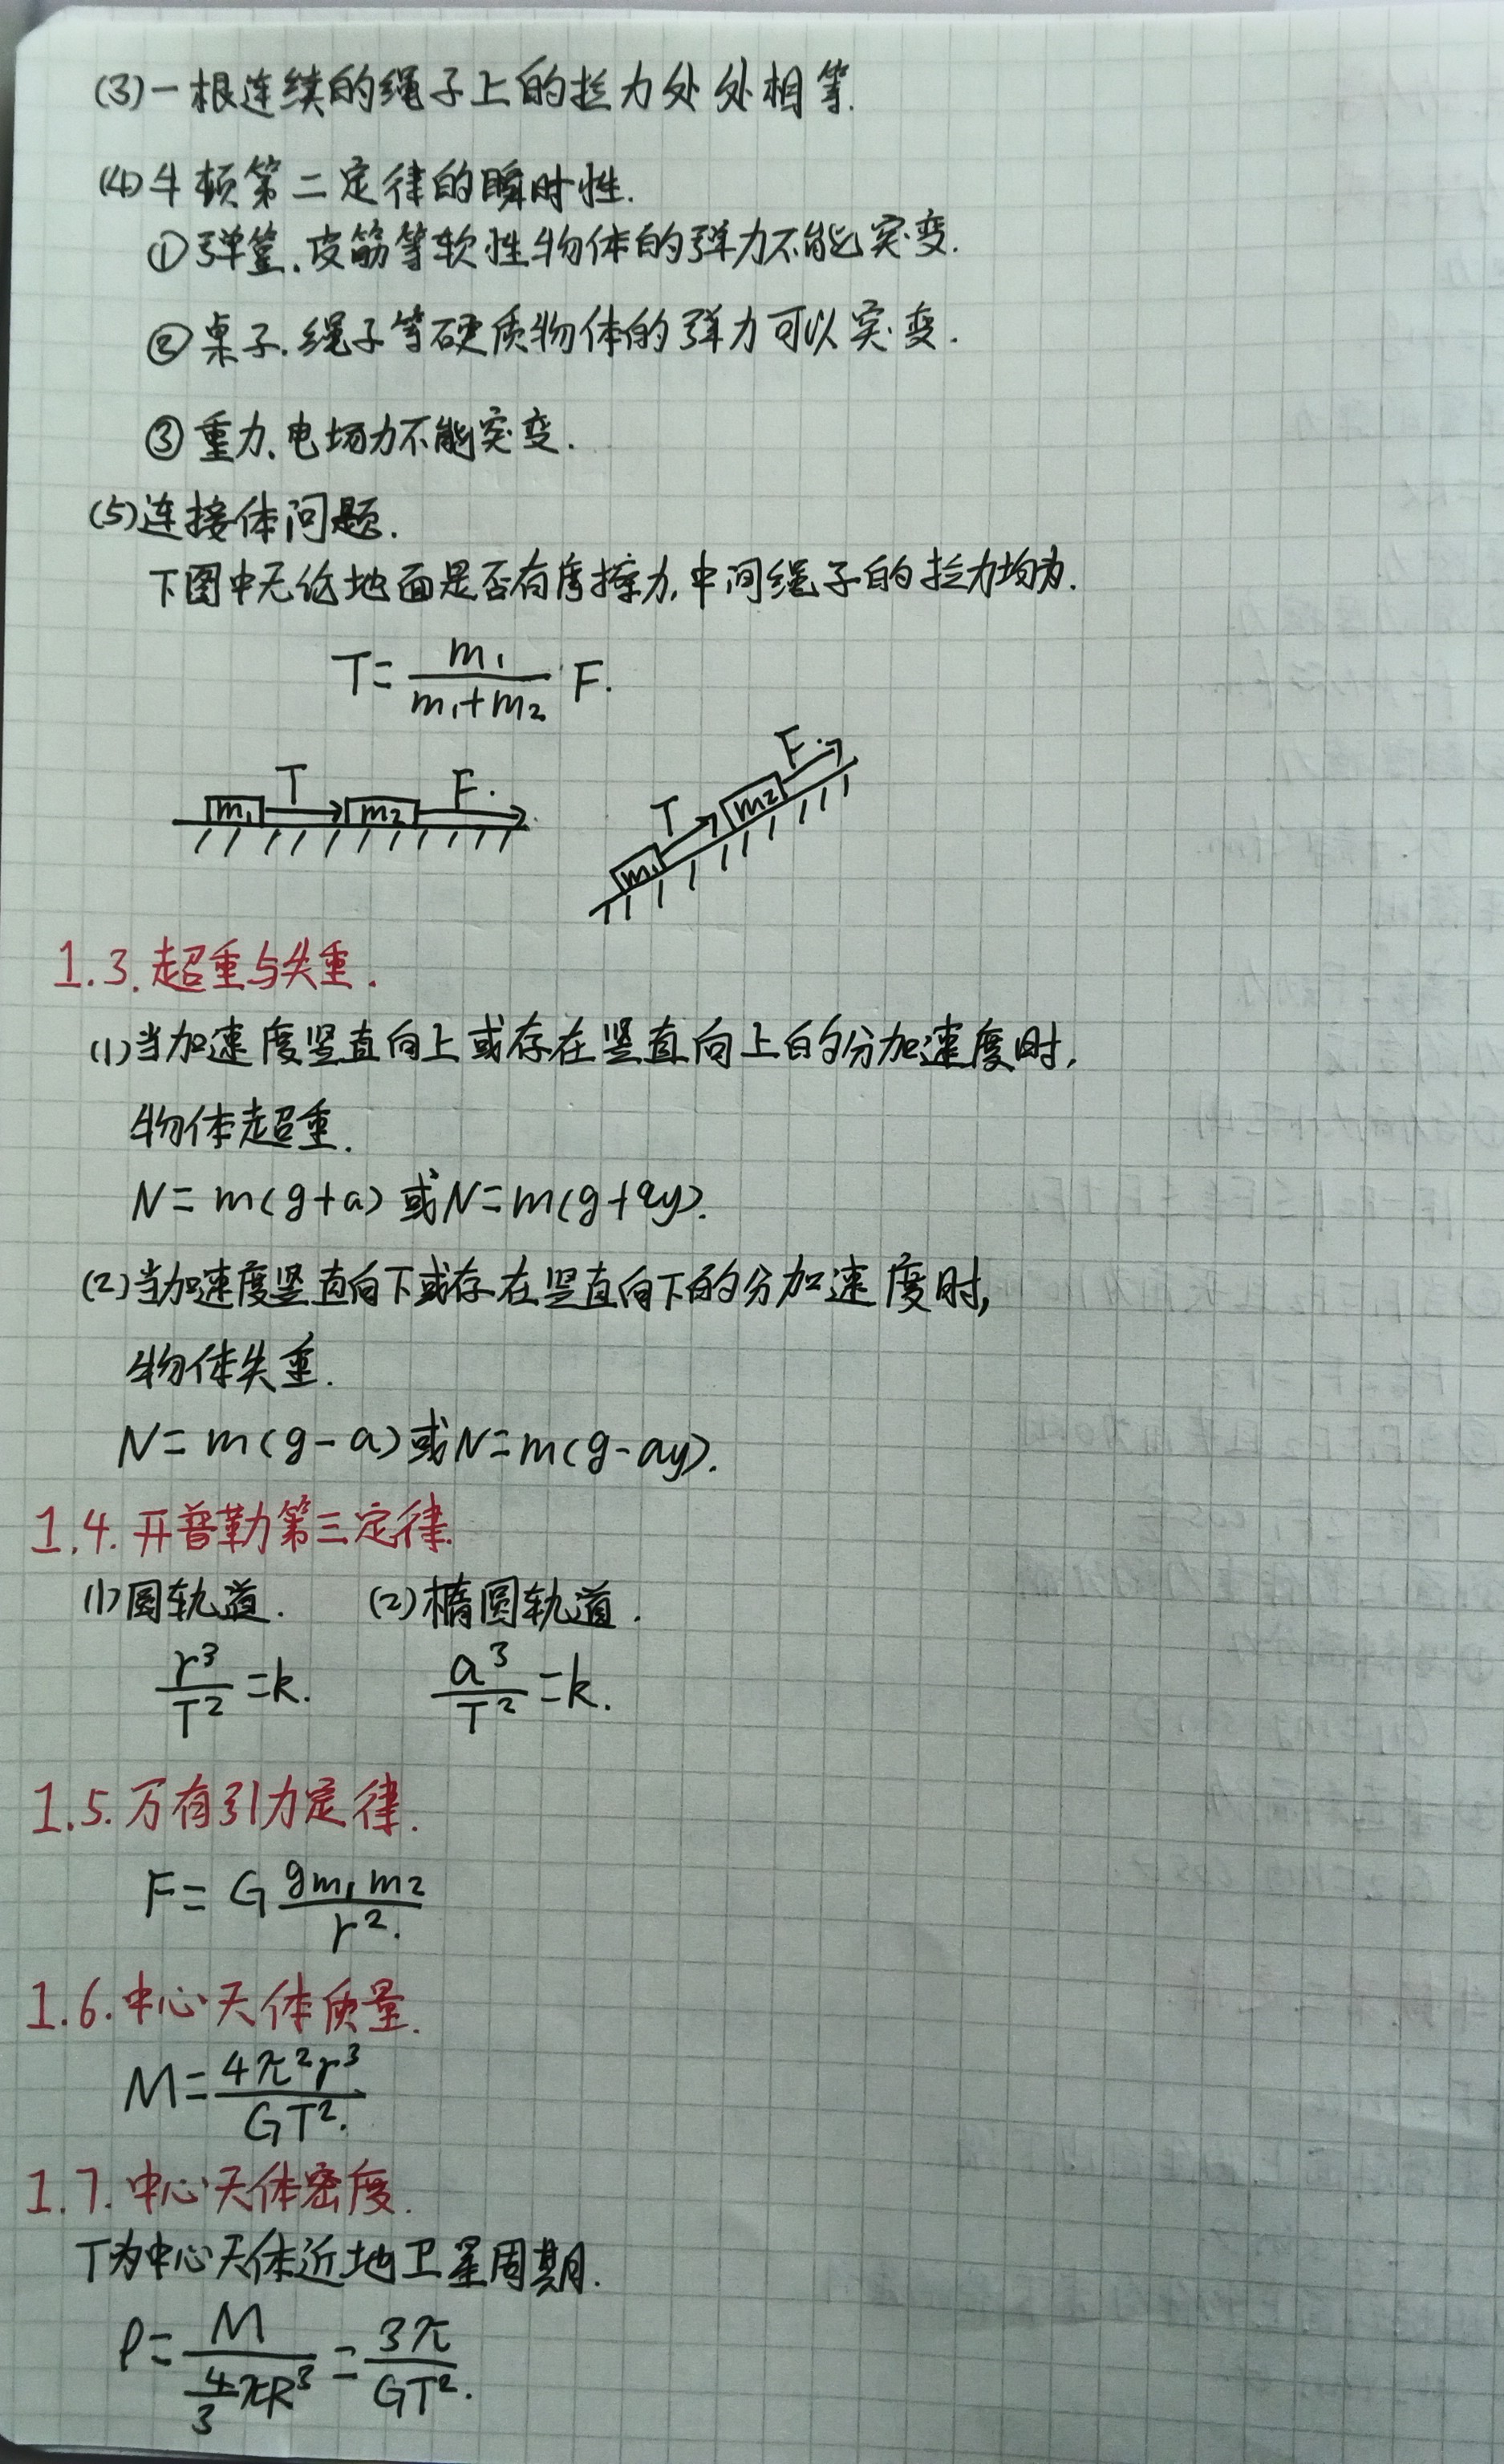 (3)一根连续的绳子上的拉力处处相等.
(4)牛顿第二定律的瞬时性.
①弹簧、皮筋等软性物体的弹力不能突变.
②桌子、绳子等硬质物体的弹力可以突变.
③重力、电场力不能突变.
(5)连接体问题.
下图中无论地面是否有摩擦力,中间绳子的拉力均为.
T=\frac{m_1}{m_1+m_2}F.
m₁ T m₂ F.
m₁ T m₂ F.
1.3.超重与失重.
(1)当加速度竖直向上或存在竖直向上的分加速度时,
物体超重.
N=m(g+a)或N=m(g+ay).
(2)当加速度竖直向下或存在竖直向下的分加速度时,
物体失重.
N=m(g-a)或N=m(g-ay).
1.4.开普勒第三定律.
(1)圆轨道. (2)椭圆轨道.
\frac{r^3}{T^2}=k. \frac{a^3}{T^2}=k.
1.5.万有引力定律.
F=G\frac{gm_1m_2}{r^2}.
1.6.中心天体质量.
M=\frac{4π^2r^3}{GT^2}.
1.7.中心天体密度.
T为中心天体近地卫星周期.
ρ=\frac{M}{\frac{4}{3}πR^3}=\frac{3π}{GT^2}.